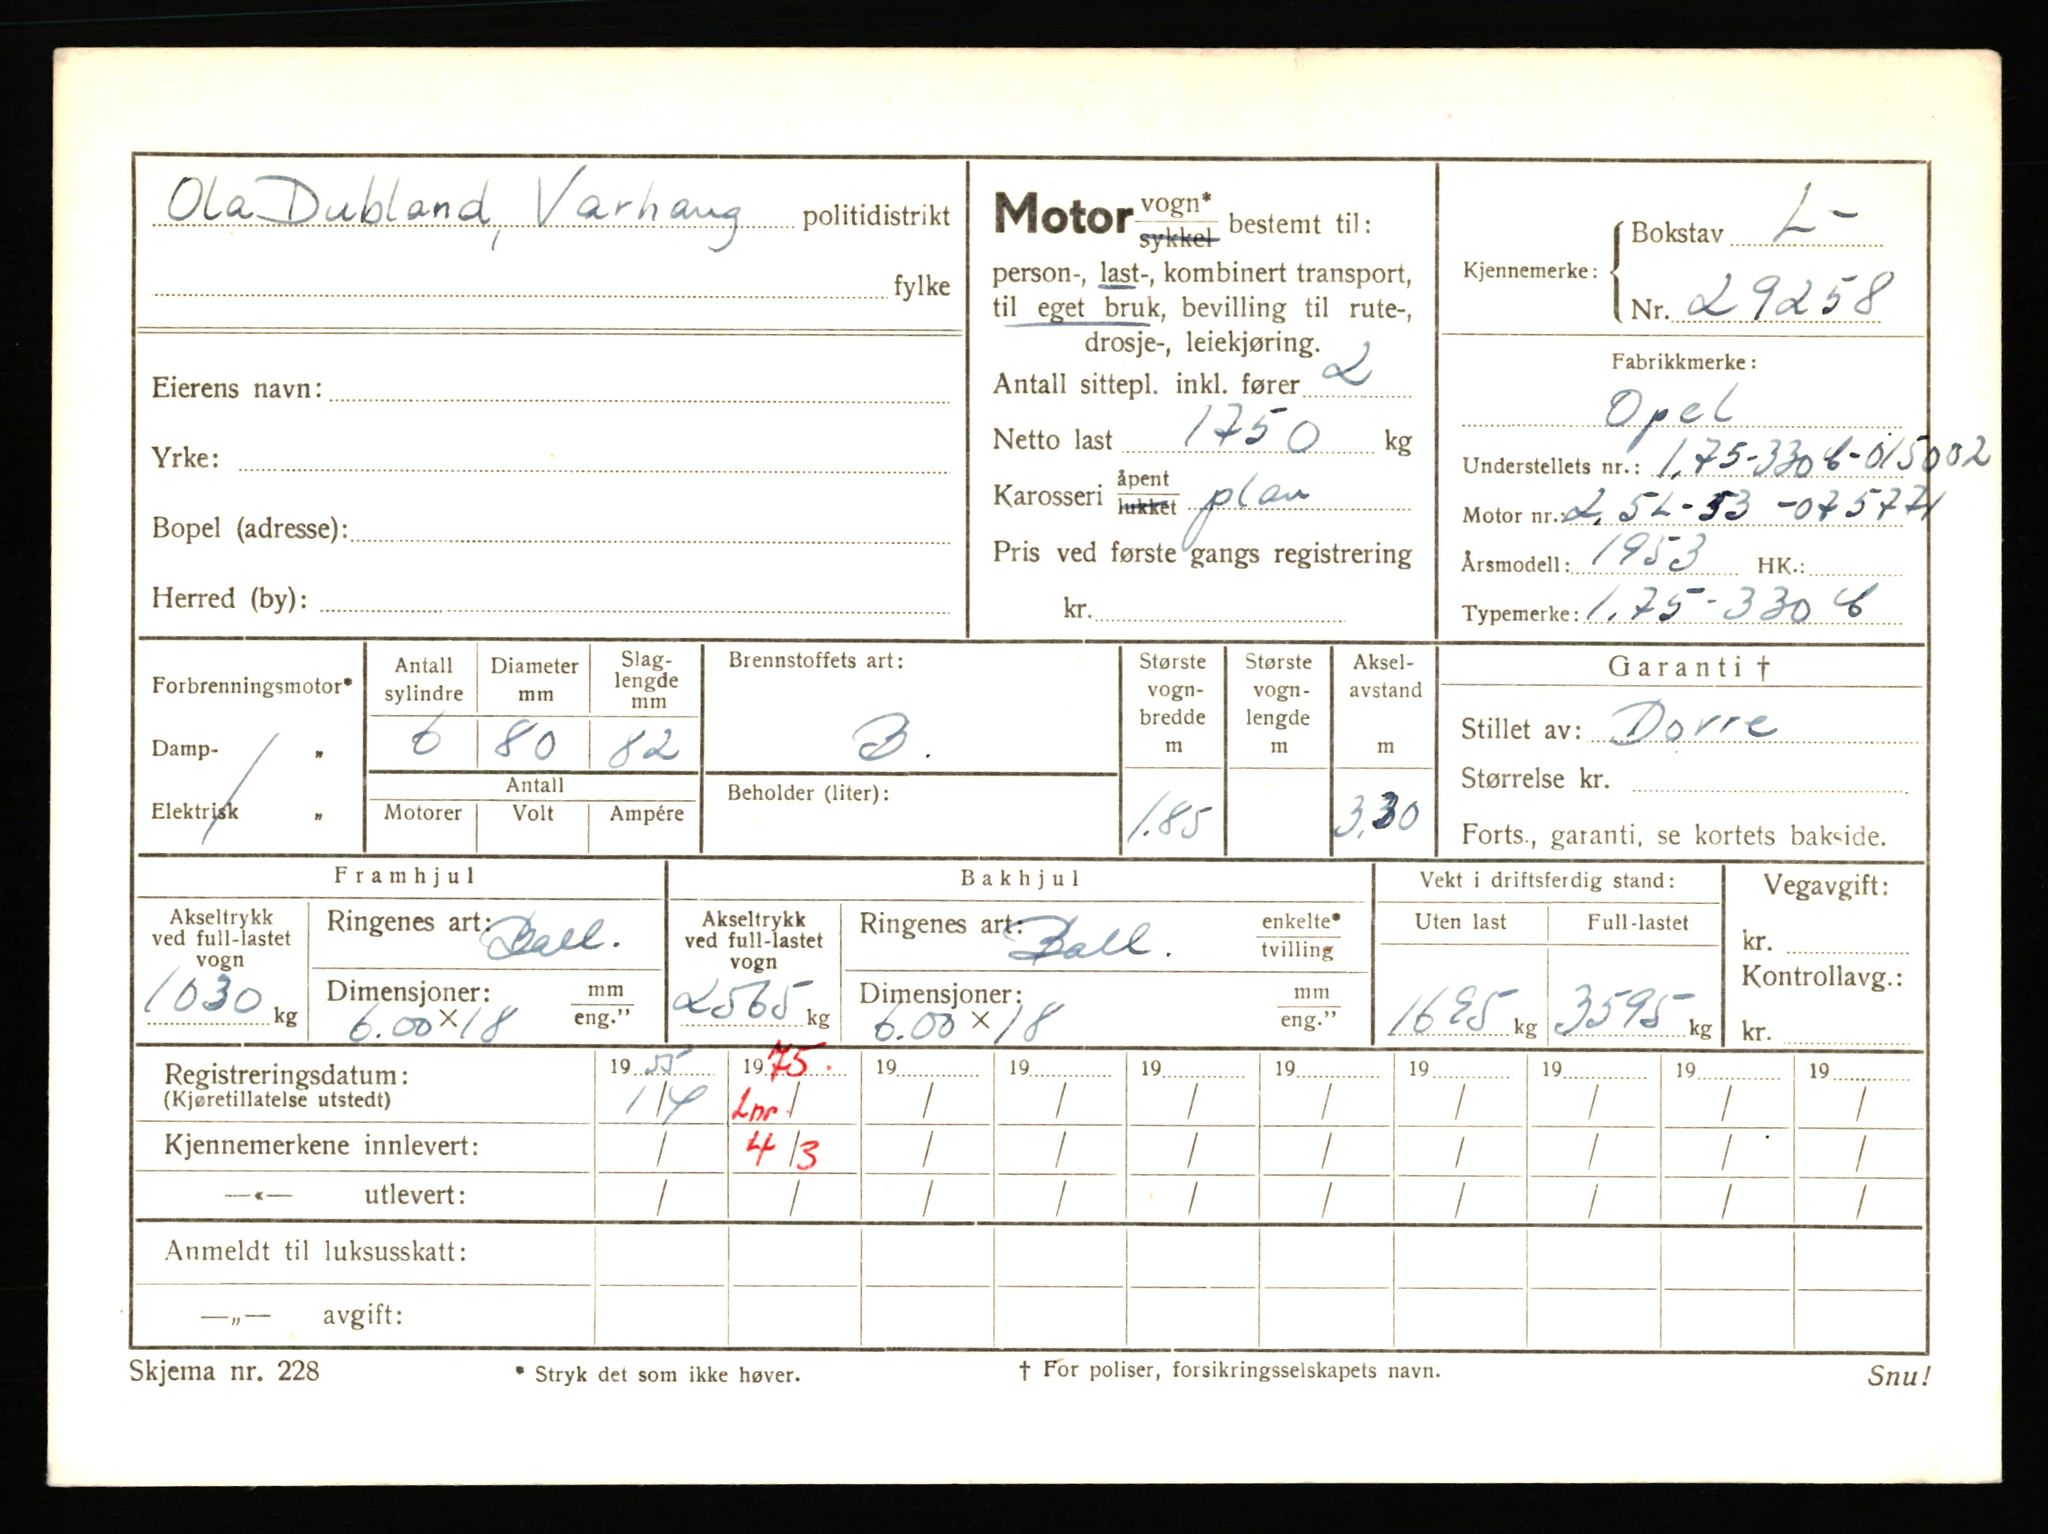 Ola Dubland, Varhaug politidistrikt
fylke
Eierens navn:
Yrke:
Bopel (adresse):
Herred (by):
Motor vogn* sykkel bestemt til:
person-, last-, kombinert transport,
til eget bruk, bevilling til rute-,
drosje-, leiekjøring.
Antall sittepl. inkl. fører 2
Netto last 1750 kg
Karosseri åpent lukket plan
Pris ved første gangs registrering
kr.
Kjennemerke: Bokstav L-
Nr. 29258
Fabrikkmerke:
Opel
Understellets nr.: 1,75-330 6-015002
Motor nr.: 2,5L-53-075771
Årsmodell: 1953 HK.:
Typemerke: 1,75-330 6
Forbrenningsmotor*
Damp- "
Elektrisk "
Antall sylindre
6
Diameter mm
80
Slag-lengde mm
82
Antall
Motorer Volt Ampére
Brennstoffets art:
B.
Beholder (liter):
Største vogn-bredde m
1.85
Største vogn-lengde m
Aksel-avstand m
3,30
Garanti †
Stillet av: Dovre
Størrelse kr.
Forts., garanti, se kortets bakside.
Framhjul
Akseltrykk ved full-lastet vogn
1030 kg
Ringenes art: Ball.
Dimensjoner: mm eng."
6.00 × 18
Bakhjul
Akseltrykk ved full-lastet vogn
2565 kg
Ringenes art: Ball. enkelte* tvilling
Dimensjoner: mm eng."
6.00 × 18
Vekt i driftsferdig stand:
Uten last Full-lastet
1695 kg 3595 kg
Vegavgift:
kr.
Kontrollavg.:
kr.
Registreringsdatum: 19 55 19 75. 19 19 19 19 19 19 19 19
(Kjøretillatelse utstedt) 1/4 Lnr / / / / / / / / /
Kjennemerkene innlevert: / 4/3 / / / / / / / /
—«— utlevert: / / / / / / / / / /
Anmeldt til luksusskatt:
—„— avgift:
Skjema nr. 228 * Stryk det som ikke høver. † For poliser, forsikringsselskapets navn. Snu!